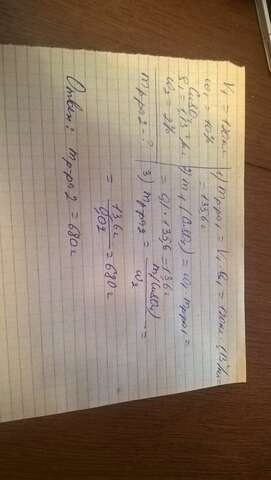 V₁ = 120мл
ω₁ = 10%
CuSO₄
ρ₁ = 1,13 г/мл
ω₂ = 2%
mр-ра2 - ?
1) mр-ра1 = V₁ · ρ₁ = 120мл · 1,13 г/мл =
= 135,6г
2) m₁(CuSO₄) = ω₁ · mр-ра1 =
= 0,1 · 135,6 = 13,6г
3) mр-ра2 = m₁(CuSO₄) / ω₂ =
= 13,6г / 0,02 = 680г
Ответ: mр-ра2 = 680г